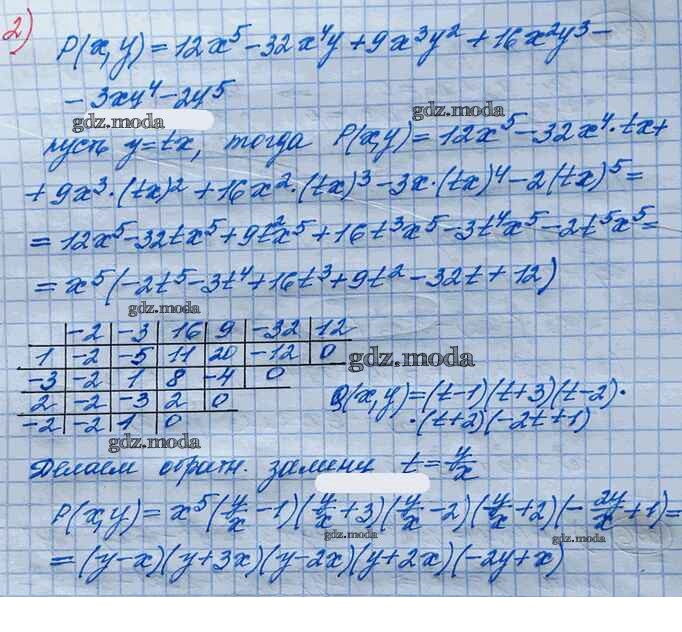 2)
P(x,y) = 12x⁵ - 32x⁴y + 9x³y² + 16x²y³ -
- 3xy⁴ - 2y⁵
gdz.moda
gdz.moda
пусть y=tx, тогда P(x,y) = 12x⁵ - 32x⁴·tx +
+ 9x³·(tx)² + 16x²·(tx)³ - 3x·(tx)⁴ - 2(tx)⁵ =
= 12x⁵ - 32tx⁵ + 9t²x⁵ + 16t³x⁵ - 3t⁴x⁵ - 2t⁵x⁵ =
= x⁵(-2t⁵ - 3t⁴ + 16t³ + 9t² - 32t + 12)
gdz.moda
-2 -3 16 9 -32 12
1 -2 -5 11 20 -12 0
gdz.moda
-3 -2 1 8 -4 0
2 -2 -3 2 0
-2 -2 1 0
Q(x,y) = (t-1)(t+3)(t-2)·
·(t+2)(-2t+1)
gdz.moda
Делаем обратн. замену t = y/x
P(x,y) = x⁵(y/x - 1)(y/x + 3)(y/x - 2)(y/x + 2)(-2y/x + 1) =
gdz.moda
gdz.moda
= (y-x)(y+3x)(y-2x)(y+2x)(-2y+x)